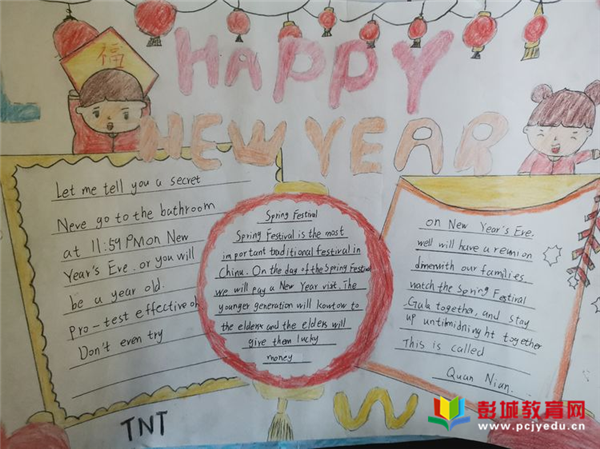 福
HAPPY
NEW YEAR
Let me tell you a secret
Neve go to the bathroom
at 11:59 PM on New
Year's Eve. or you will
be a year old.
pro-test effective oh
Don't even try
TNT
Spring Festival
Spring Festival is the most
important traditional festival in
China. On the day of the Spring Festival
we will pay a New Year visit. The
younger generation will kowtow to
the elders and the elders will
give them lucky
money
on New Year's Eve.
well will have a reunion
dinner with our families.
watch the Spring Festival
Gala together, and stay
up until midnight together
This is called
Quan Nian.
彭城教育网
www.pcjyedu.cn